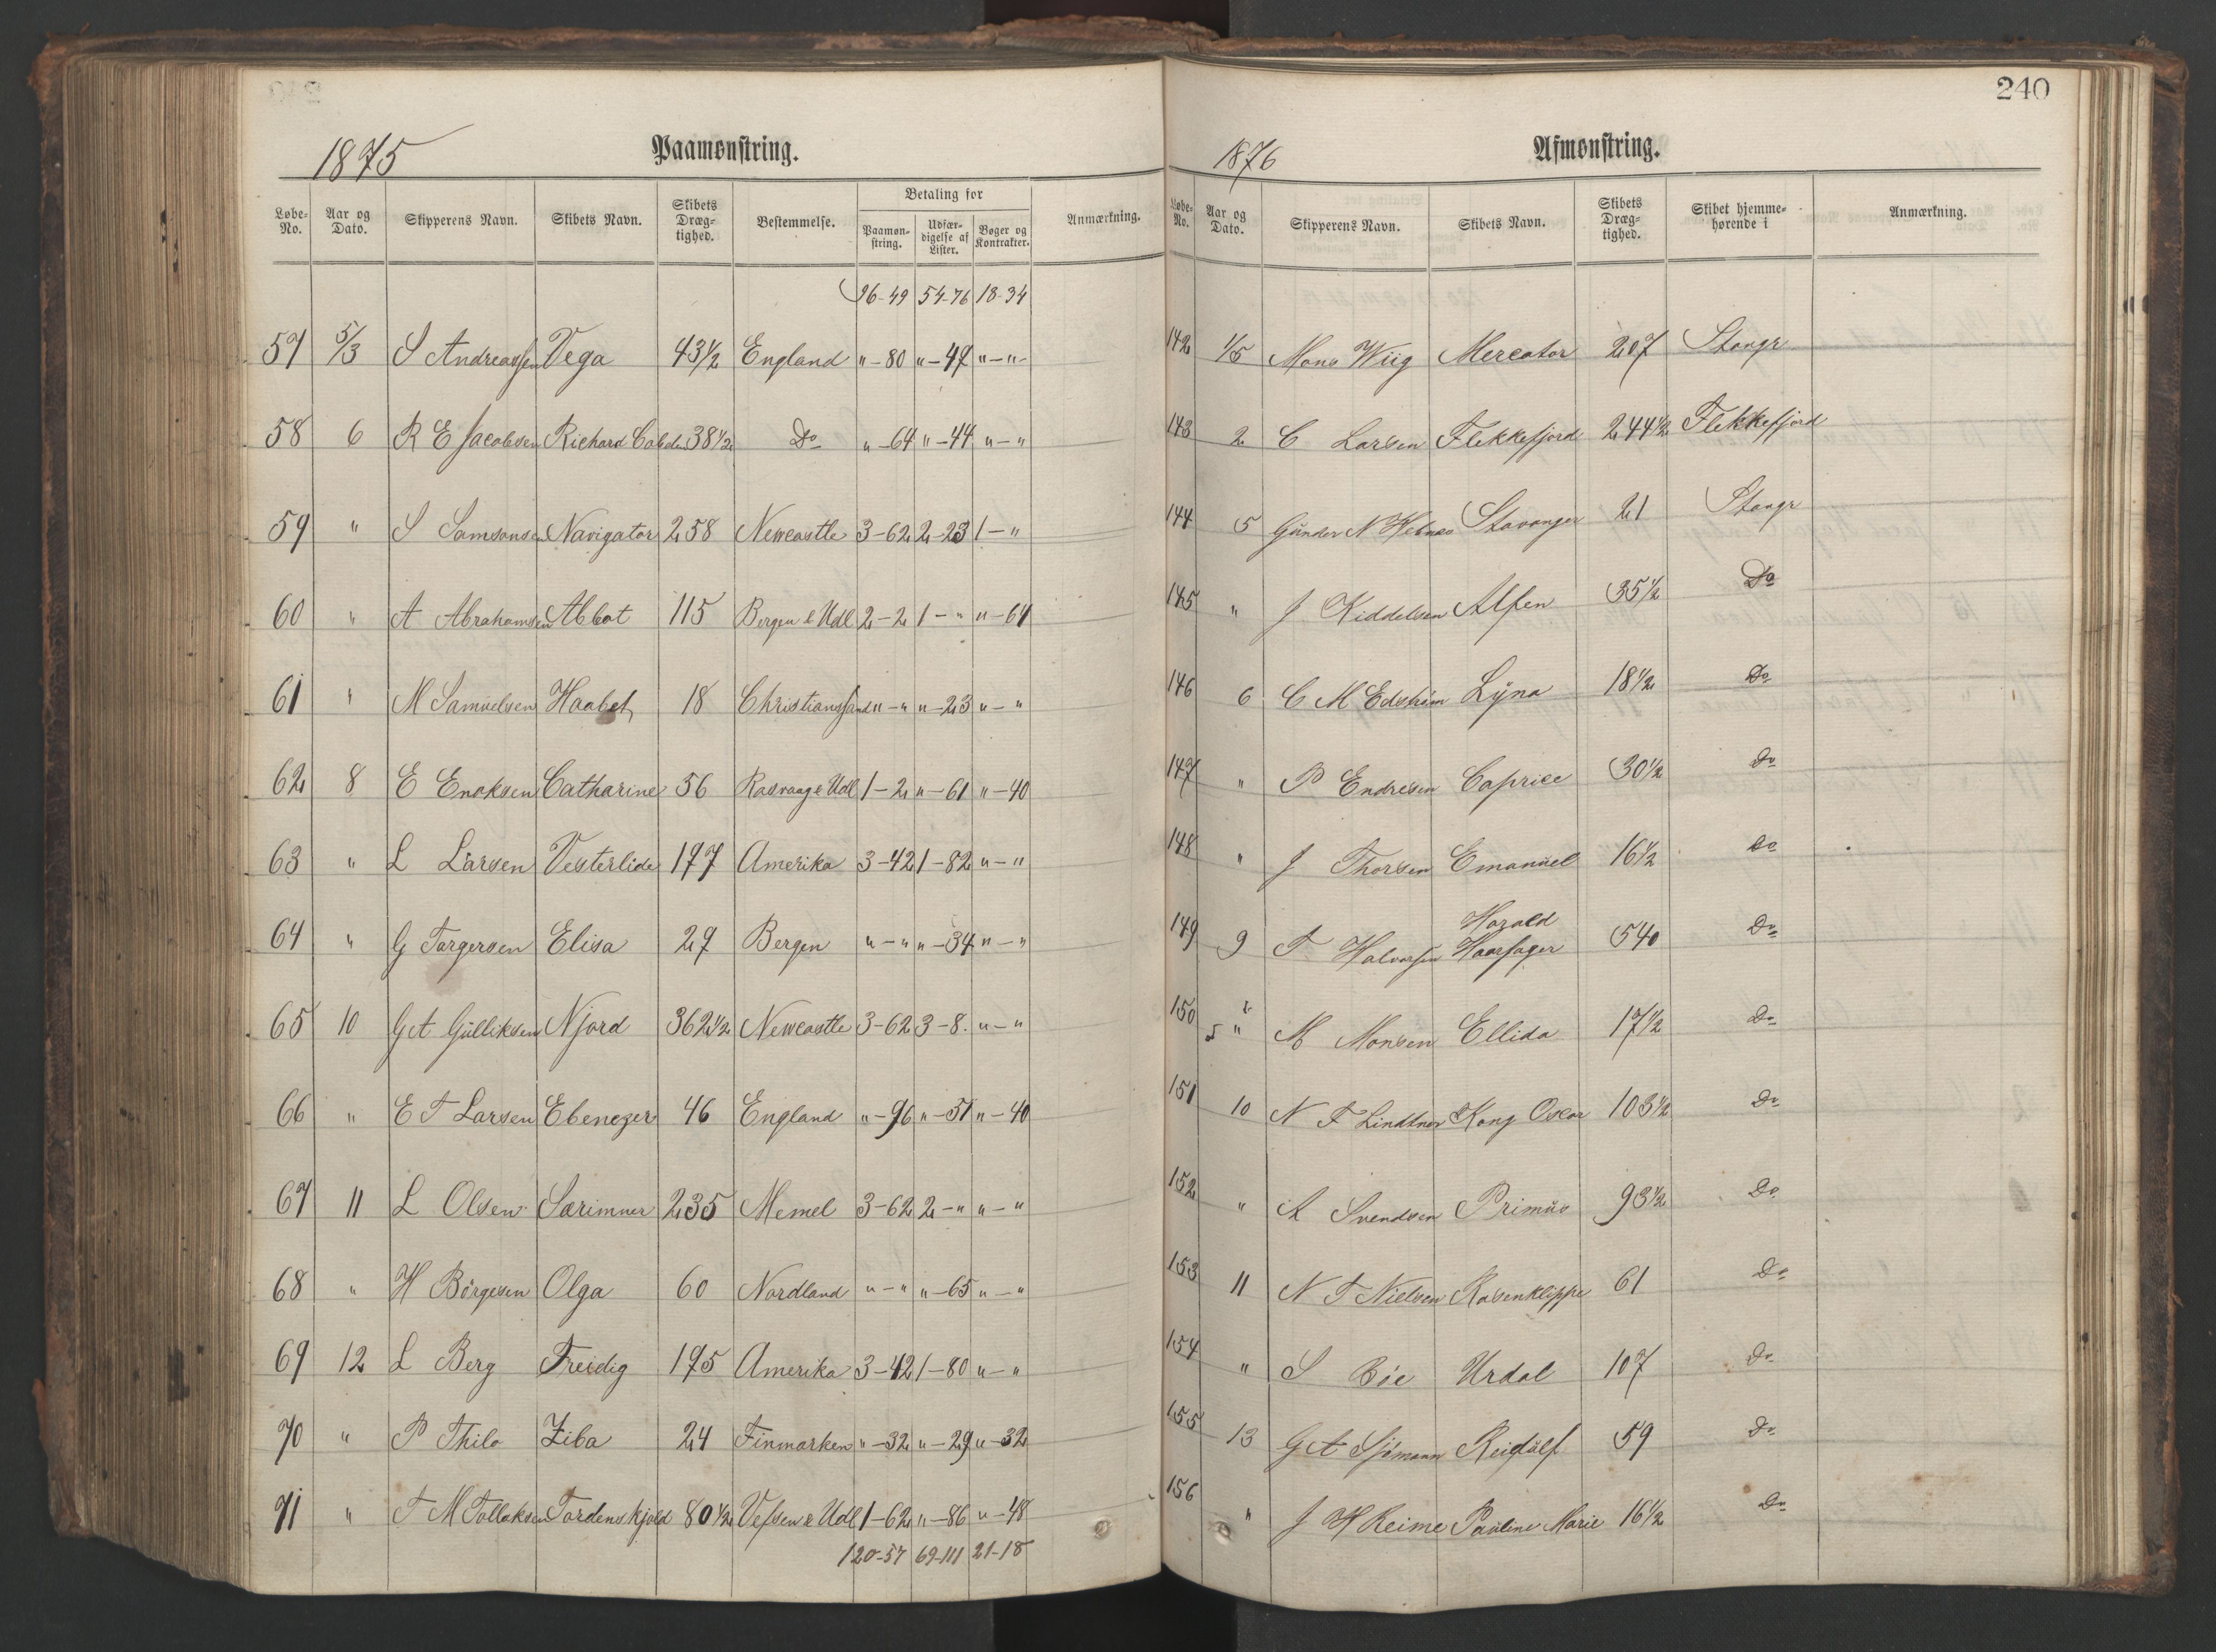 240
1875 Paamønstring.
Løbe-No. Aar og Dato. Skipperens Navn. Skibets Navn. Skibets Dræg-tighed. Bestemmelse. Betaling for Paamøn-string. Udfær-digelse af Lister. Bøger og Kontrakter. Anmærkning.
96-49 54-76 18-34
57 5/3 S Andreassen Vega 43 1/2 England " - 80 " - 47 " - "
58 6 R E Jacobsen Richard Cobden 38 1/2 Do " - 64 " - 44 " - "
59 " S Samsonsen Navigator 258 Newcastle 3 - 62 2 - 23 1 - "
60 " A Abrahamsen Abbot 115 Bergen & Udl 2 - 2 1 - " " - 64
61 " M Samuelsen Haabet 18 Christianssand " - " " - 23 " - "
62 8 E Enoksen Catharine 56 Rasvaag & Udl 1 - 2 " - 61 " - 40
63 " L Larsen Vesterlide 177 Amerika 3 - 42 1 - 82 " - "
64 " G Torgersen Elisa 27 Bergen " - " " - 34 " - "
65 10 G A Gulliksen Njord 362 1/2 Newcastle 3 - 62 3 - 8 " - "
66 " E T Larsen Ebenezer 46 England " - 96 " - 51 " - 40
67 11 L Olsen Særimner 235 Memel 3 - 62 2 - " " - "
68 " H Börgesen Olga 60 Nordland " - " " - 65 " - "
69 12 L Berg Freidig 175 Amerika 3 - 42 1 - 80 " - "
70 " P Thilo Ziba 24 Finmarken " - 32 " - 29 " - 32
71 " T M Tollaksen Tordenskjold 80 1/2 Vefsen & Udl 1 - 62 " - 86 " - 48
120-57 69-111 21-18
1876 Afmønstring.
Løbe-No. Aar og Dato. Skipperens Navn. Skibets Navn. Skibets Dræg-tighed. Skibet hjemme-hørende i Anmærkning.
142 1/5 Mons Wiig Mercator 207 Stangr
143 2 C Larsen Flekkefjord 244 1/2 Flekkefjord
144 5 Gunder N Stavanger 21 Stangr
145 " J Kiddelsen Alfen 35 1/2 Do
146 6 C M Edström Lyna 18 1/2 Do
147 " P Endresen Caprice 30 1/2 Do
148 " J Thorsen Emanuel 16 1/2 Do
149 9 T Halvorsen Harald Haarfager 540 Do
150 " M Monsen Ellida 17 1/2 Do
151 10 N F Lindtner Kong Oscar 103 1/2 Do
152 " A Svendsen Primus 93 1/2 Do
153 11 N T Nielsen Rosenklippe 61 Do
154 " S Böe Urdal 107 Do
155 13 G A Sjömann Reidulf 59 Do
156 " J H Reime Pauline Marie 16 1/2 Do